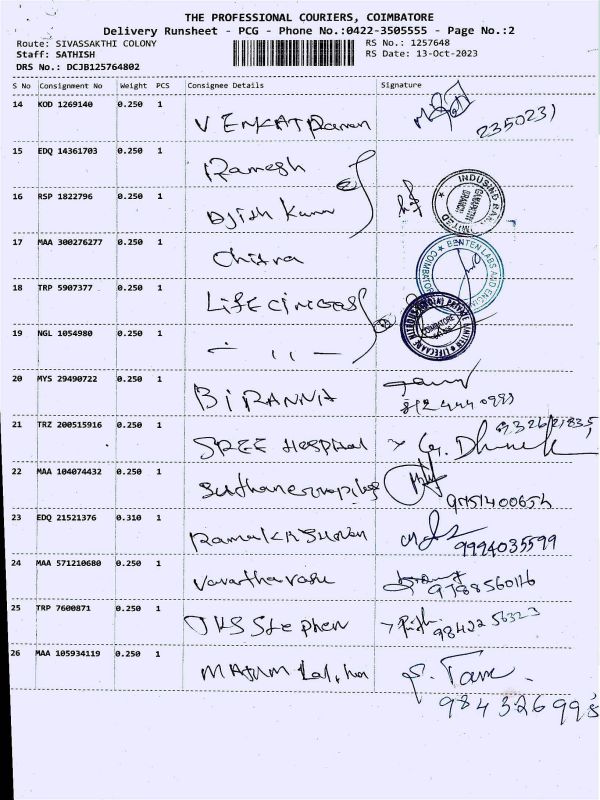 THE PROFESSIONAL COURIERS, COIMBATORE
Delivery Runsheet - PCG - Phone No.:0422-3505555 - Page No.:2
Route: SIVASSAKTHI COLONY
RS No.: 1257648
Staff: SATHISH
RS Date: 13-Oct-2023
DRS No.: DCJB125764802
S No Consignment No Weight PCS Consignee Details Signature
14 KOD 1269140 0.250 1 VENKATRaman 2350231
15 EDQ 14361703 0.250 1 Ramesh
16 RSP 1822796 0.250 1 Ajith Kumar
INDUSIND BANK LIMITED
BRANCH
17 MAA 300276277 0.250 1 Chitra
BENTEN LABS AND
COIMBATORE
18 TRP 5907377 0.250 1 Life
PRIVATE LIMITED
COIMBATORE
19 NGL 1054980 0.250 1 — ,, —
20 MYS 29490722 0.250 1 BIRANNA
21 TRZ 200515916 0.250 1 SREE Hospital
22 MAA 104074432 0.250 1 9751400654
23 EDQ 21521376 0.310 1 Ramakrishnan 9994035599
24 MAA 571210680 0.250 1 9788560116
25 TRP 7600871 0.250 1 Stephen 98422 56323
26 MAA 105934119 0.250 1